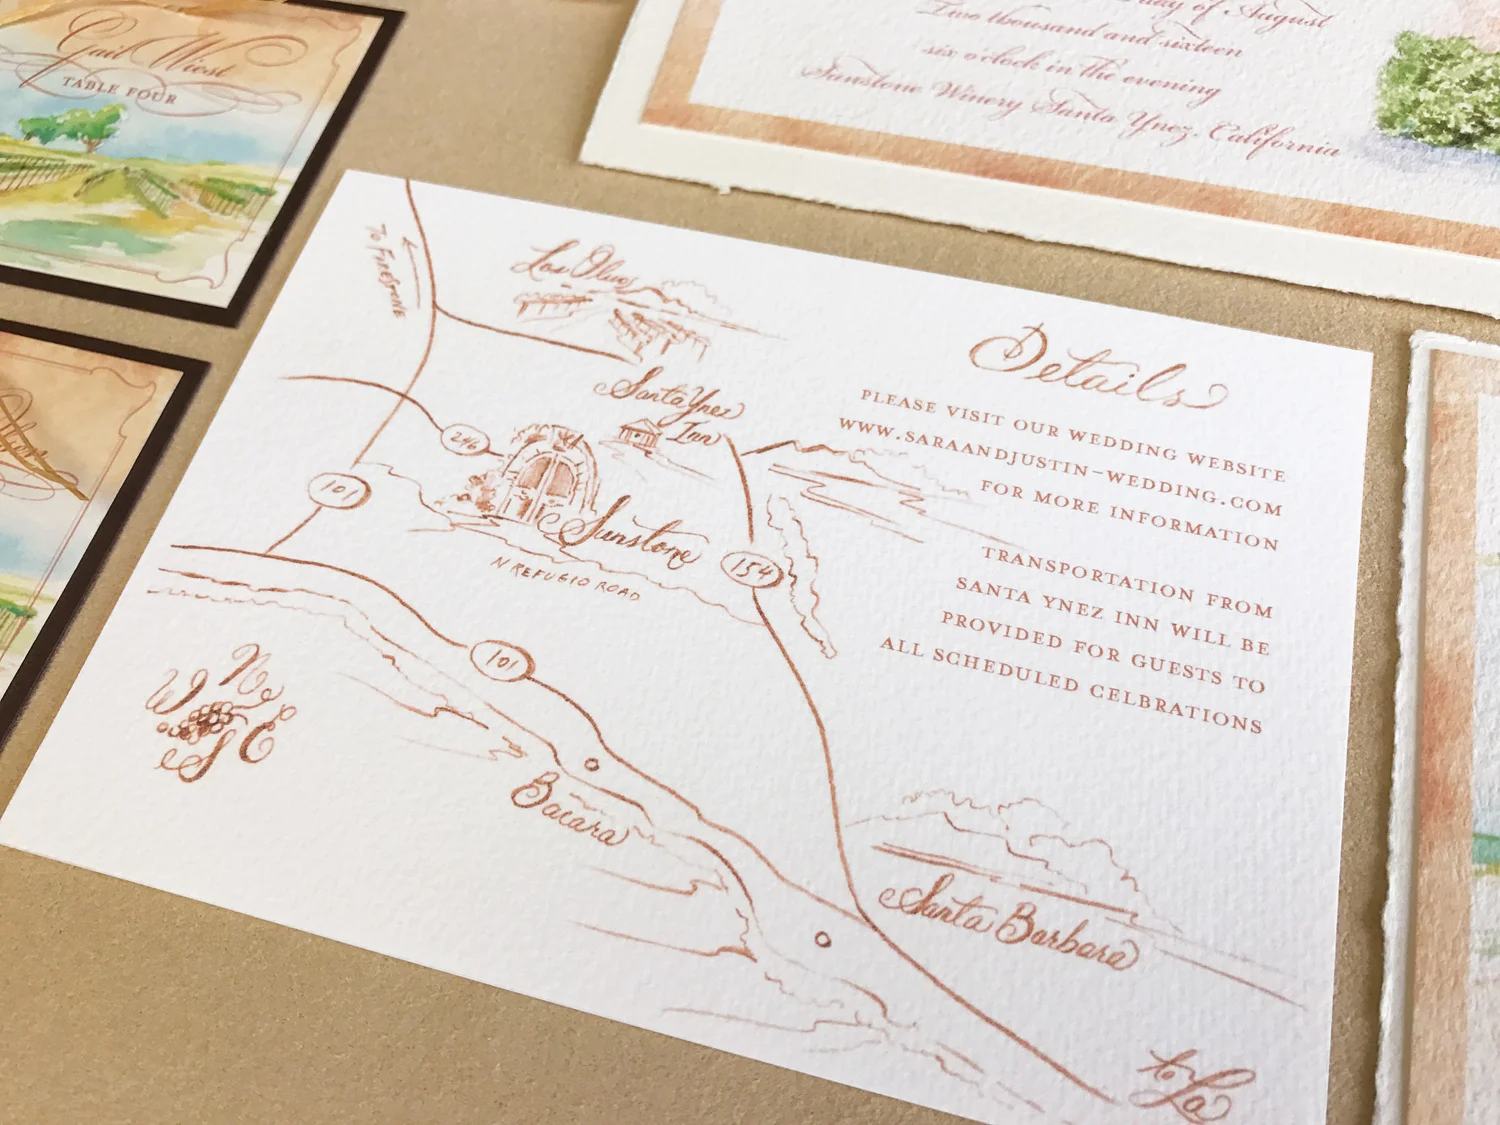 Gail Wiest
TABLE FOUR
day of August
Two thousand and sixteen
six o'clock in the evening
Sunstone Winery Santa Ynez, California
To Firestone
Los Olivos
Santa Ynez
Inn
246
101
Sunstone
N REFUGIO ROAD
154
101
N
W
E
S
Bacara
Santa Barbara
to La
Details
PLEASE VISIT OUR WEDDING WEBSITE
WWW.SARAANDJUSTIN-WEDDING.COM
FOR MORE INFORMATION
TRANSPORTATION FROM
SANTA YNEZ INN WILL BE
PROVIDED FOR GUESTS TO
ALL SCHEDULED CELBRATIONS